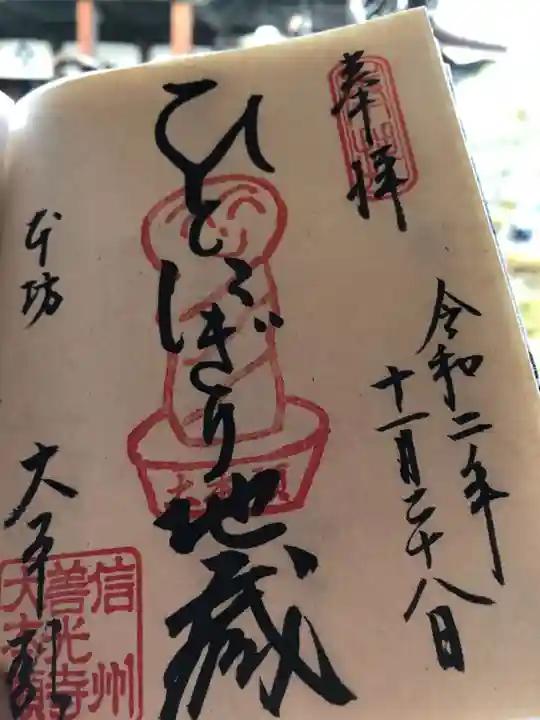 奉拝
令和二年
十一月二十八日
ひとにぎり地蔵
本坊
大本願
信州
善光寺
大本願